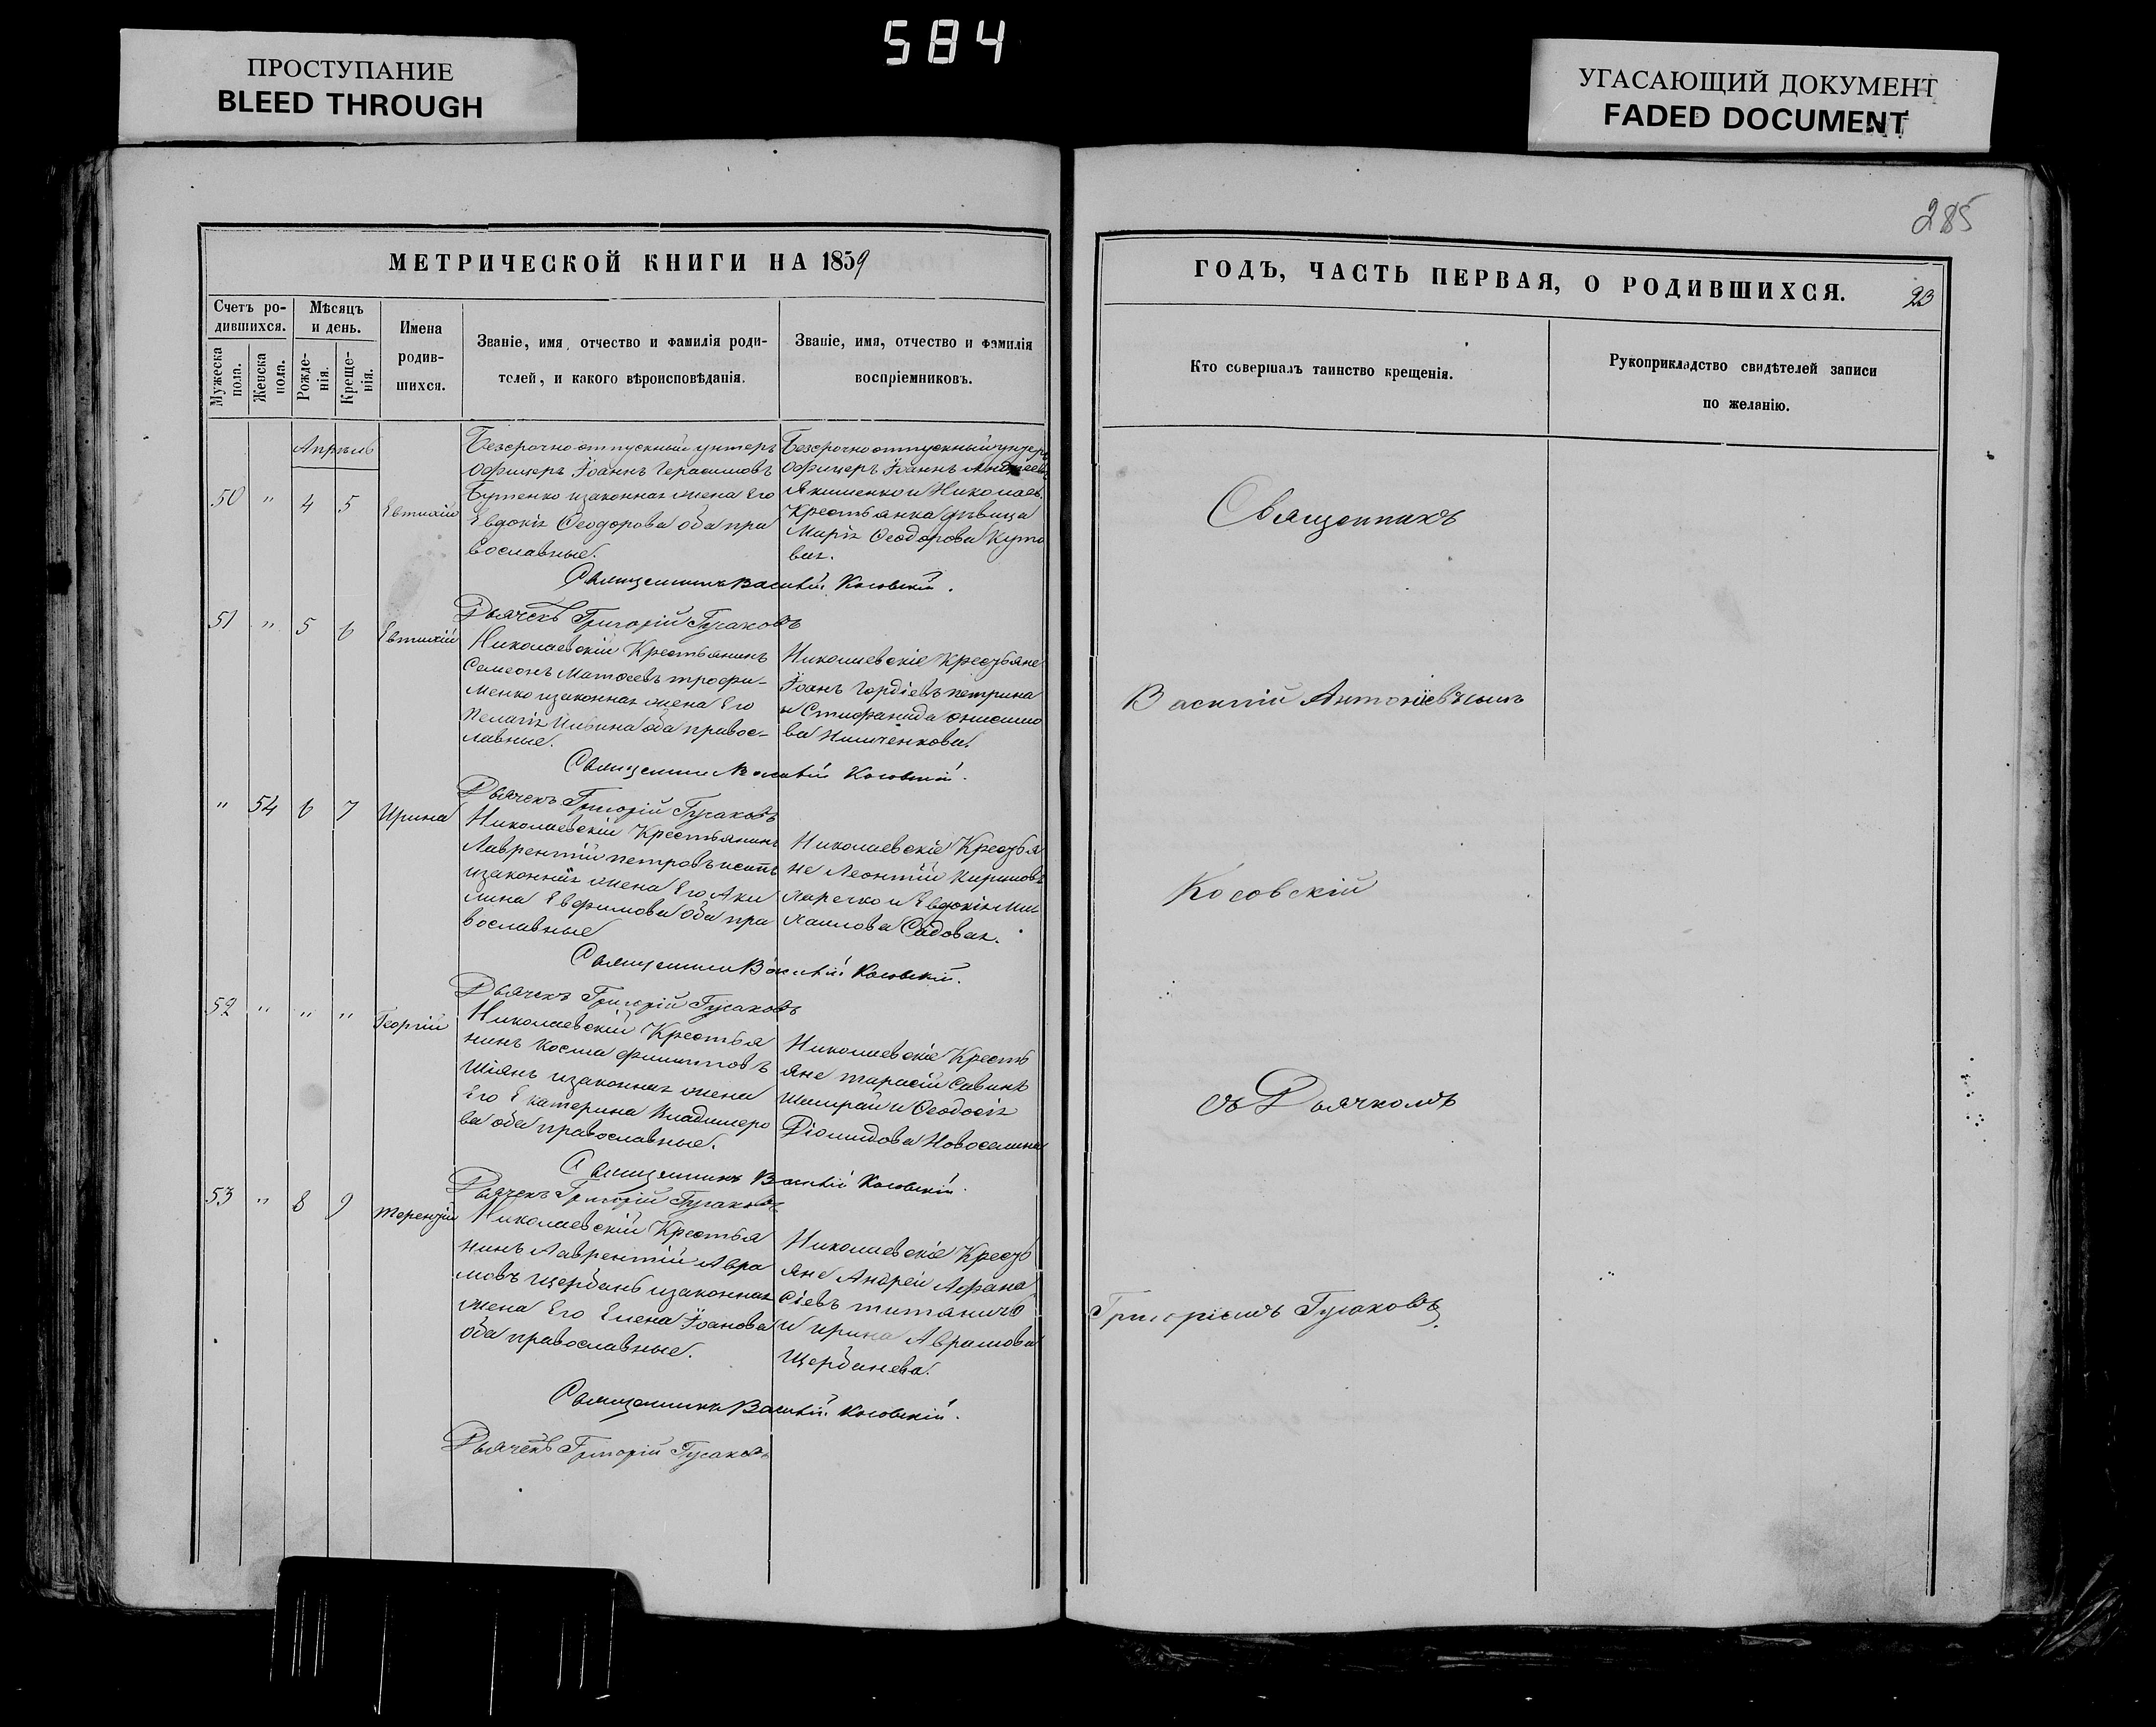 584
ПРОСТУПАНИЕ
BLEED THROUGH
УГАСАЮЩИЙ ДОКУМЕНТ
FADED DOCUMENT
285
МЕТРИЧЕСКОЙ КНИГИ НА 1859
Счетъ ро-
дившихся.
Мужеска
пола.
Женска
пола.
Мѣсяцъ
и день.
Рожде-
нія.
Креще-
нія.
Имена
родив-
шихся.
Званіе, имя, отчество и фамилія роди-
телей, и какого вѣроисповѣданія.
Званіе, имя, отчество и фамилія
воспріемниковъ.
Апрѣль
50 " 4 5 Евтихій
Безсрочноотпускный унтеръ
Офицеръ Іоаннъ Герасимовъ
Бутенко изаконная жена Его
Евдокія Ѳеодорова оба пра
вославные.
Безсрочноотпускный унтеръ
Офицеръ Іоаннъ
Якименко и Николаев.
Крестьянка дѣвица
Марія Ѳеодорова Куто
вая.
Священникъ Василій Косовскій.
Дьячекъ Григорій Гусаковъ
51 " 5 6 Евтихій
Николаевскій Крестьянинъ
Симеонъ Матѳеевъ трофи-
менко изаконная жена Его
Пелагія Ильина оба правос-
лавные.
Николаевскіе Крестьяне
Іоанъ Гордіевъ петрина
и Стефанида Онисимо
ва Ильченкова.
Священникъ Василій Косовскій.
Дьячекъ Григорій Гусаковъ
" 54 6 7 Ирина
Николаевскій Крестьянинъ
Лаврентій петровъ
изаконная жена Его Аки
лина Евфимова оба пра
вославные
Николаевскіе Крестья
не Леонтій Кириловъ
и Евдокія Ми-
хаилова Садовая.
Священникъ Василій Косовскій.
Дьячекъ Григорій Гусаковъ
52 " " " Георгій
Николаевскій Крестья
нинъ Косма филиповъ
Шіянъ изаконная жена
Его Екатерина Владимеро
ва оба православные.
Николаевскіе Кресть
яне тарасій Савинъ
и Ѳеодосія
Діомидова Новоселина
Священникъ Василій Косовскій.
Дьячекъ Григорій Гусаковъ
53 " 8 9 терентій
Николаевскій Крестья
нинъ Лаврентій Авра
мовъ Щербань изаконная
жена Его Елена Іоанова
оба православные.
Николаевскіе Кресть
яне Андрей Афана
сіевъ
и ирина Аврамова
Щербанева.
Священникъ Василій Косовскій.
Дьячекъ Григорій Гусаковъ
ГОДЪ, ЧАСТЬ ПЕРВАЯ, О РОДИВШИХСЯ.
23
Кто совершалъ таинство крещенія.
Рукоприкладство свидѣтелей записи
по желанію.
Священникъ
Василій Антоніевъ сынъ
Косовскій
съ Дьячкомъ
Григоріемъ Гусаковъ